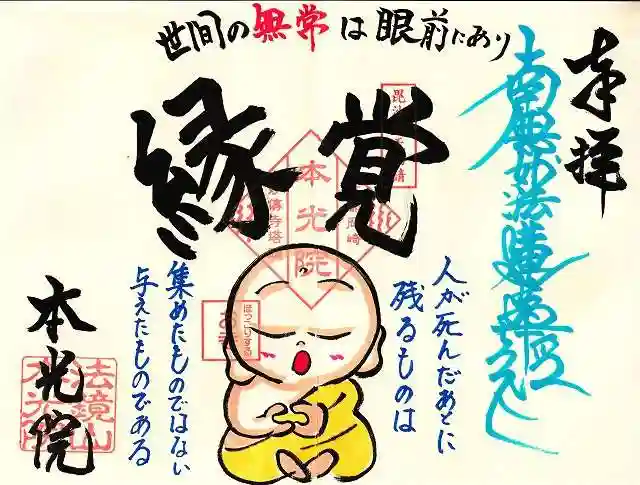 世間の無常は眼前にあり
奉拝
南無妙法蓮華経
縁覚
人が死んだあとに
残るものは
集めたものではない
与えたものである
本光院
本光院
法鏡山
本光院
ほっこりする